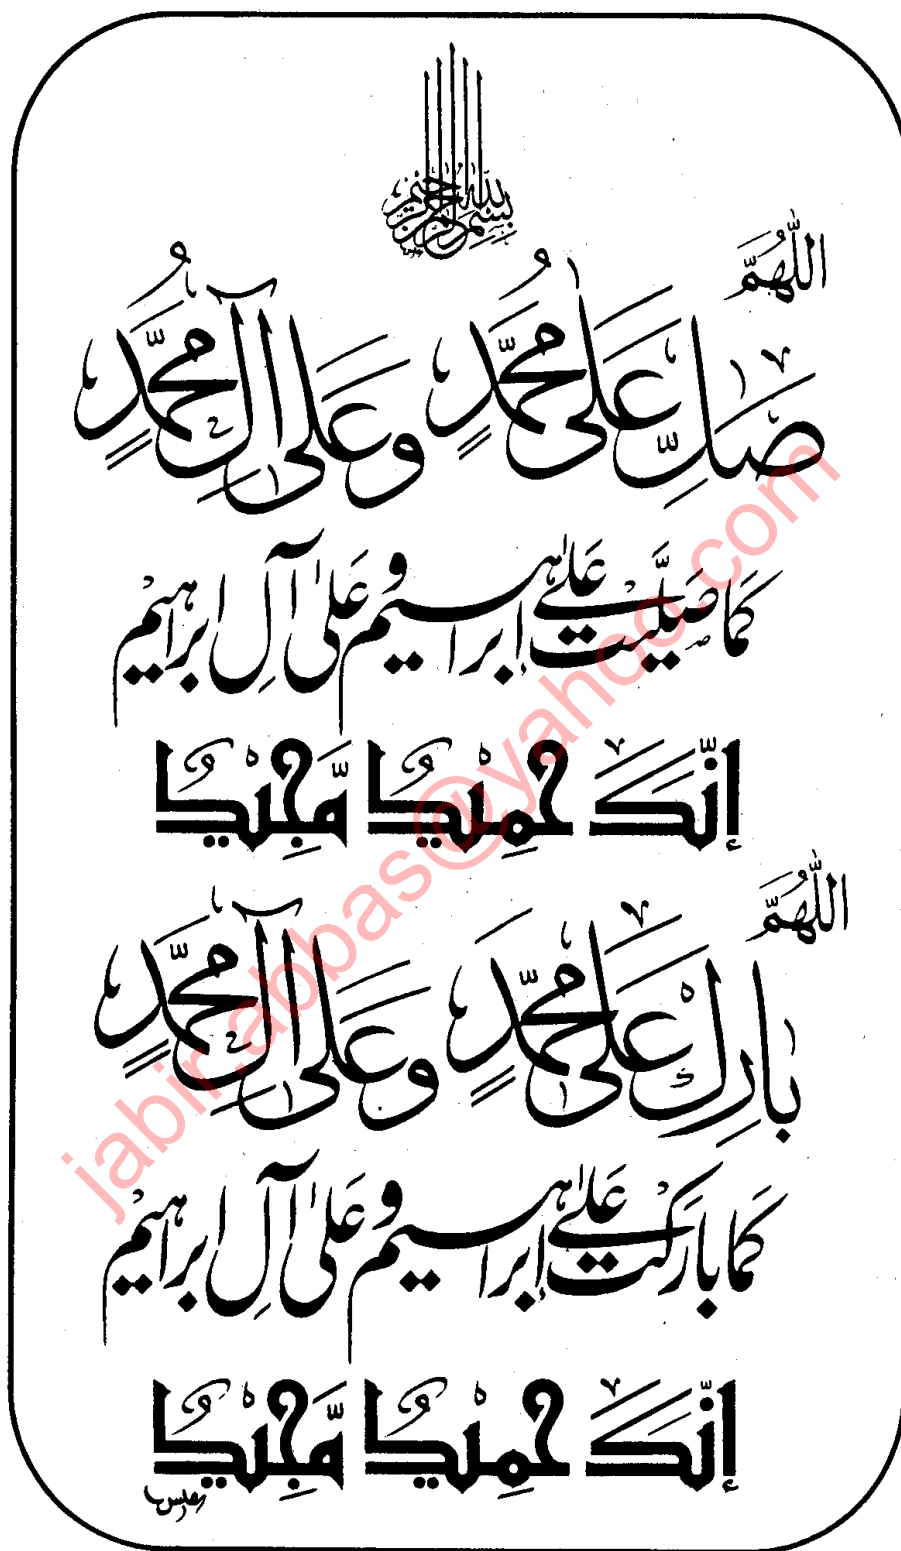 بِسْمِ اللهِ الرَّحْمٰنِ الرَّحِيْمِ
اللّٰهُمَّ
صَلِّ عَلٰى مُحَمَّدٍ وَعَلٰى آلِ مُحَمَّدٍ
كَمَا صَلَّيْتَ عَلٰى اِبْرَاهِيْمَ وَعَلٰى آلِ اِبْرَاهِيْمَ
إِنَّكَ حَمِيْدٌ مَّجِيْدٌ
اللّٰهُمَّ
بَارِكْ عَلٰى مُحَمَّدٍ وَعَلٰى آلِ مُحَمَّدٍ
كَمَا بَارَكْتَ عَلٰى اِبْرَاهِيْمَ وَعَلٰى آلِ اِبْرَاهِيْمَ
إِنَّكَ حَمِيْدٌ مَّجِيْدٌ
jabir.abbas@yahoo.com